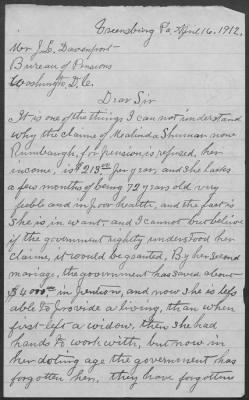 Greensburg Pa, April 16, 1912.
Mr J. L. Davenport
Bureau of Pensions
Washington, D. C.
Dear Sir
It is one of the things I can not understand
why the claime of Malinda Shuman now
Rumbaugh, for pension is refused, her
income, is $213.00 per year, and she lacks
a few months of being 72 years old, very
feeble and in poor health, and the fact is
She is in want, and I cannot but belive
if the government rightly understood her
claime, it would be granted, By her second
mariage, the government has saved about
$4000.00 in pentions, and now she is less
able to provide a living, than when
first left a widow, then she had
hands to work with, but now in
her doting age the government has
forgotten her, they have forgotten